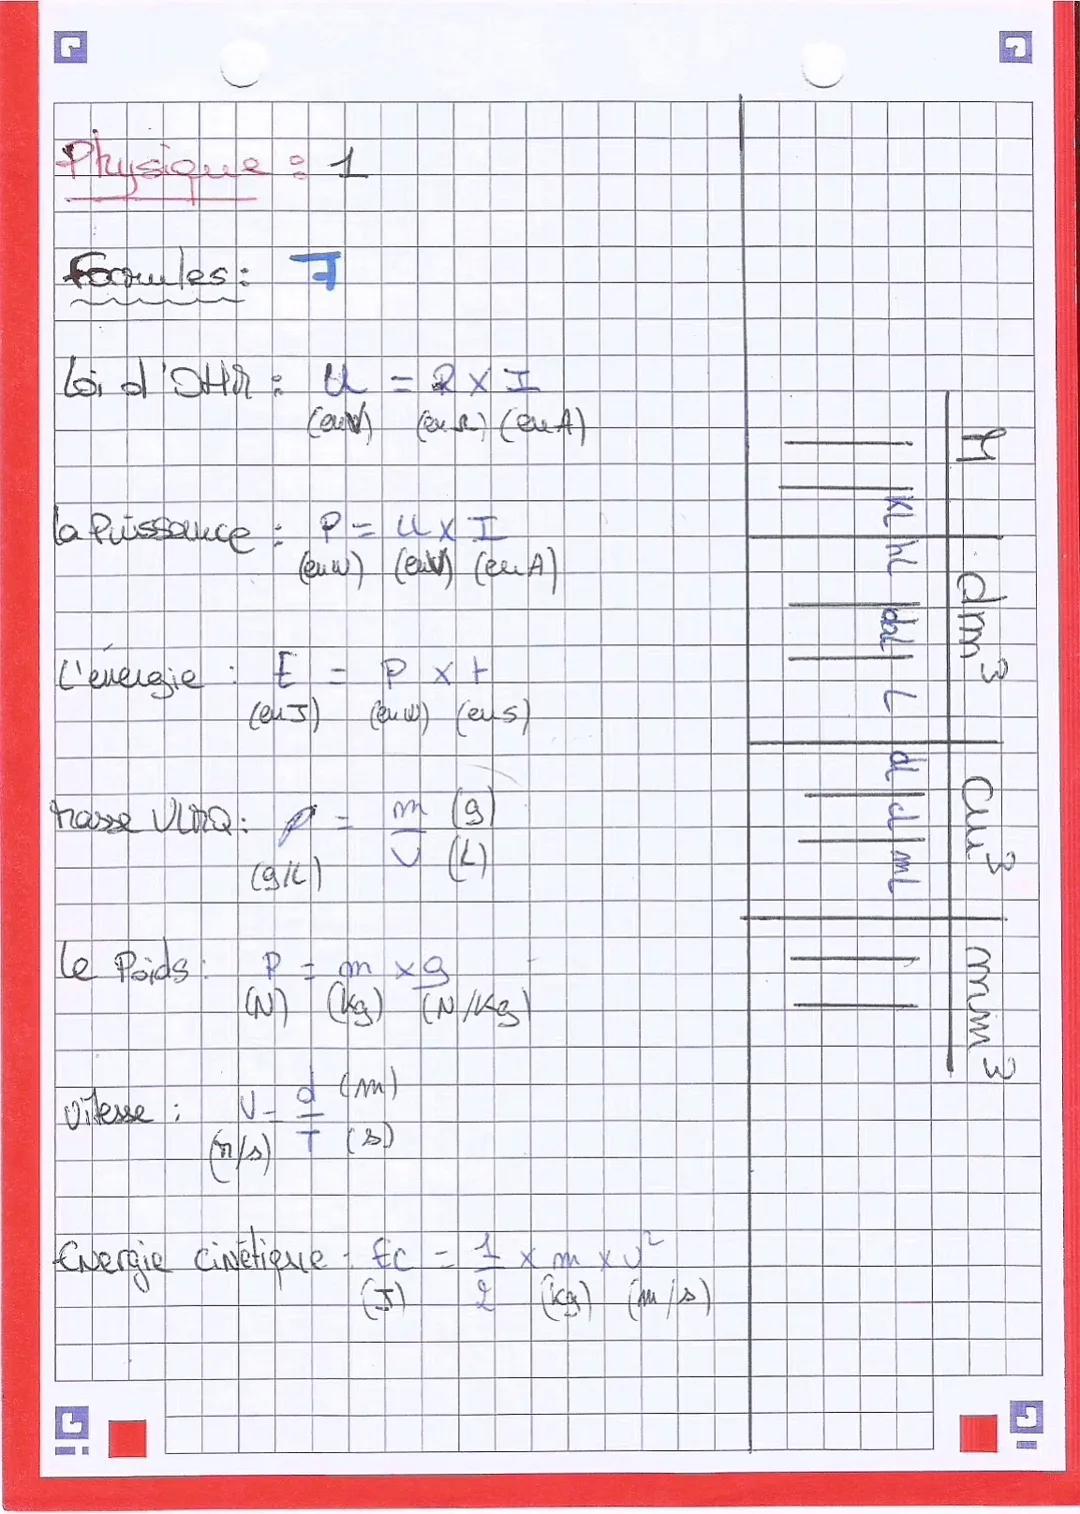 Physique : 1
Formules : 7
Loi d'OHM : U = R x I
(en V) (en Ω) (en A)
la Puissance : P = U x I
(en W) (en V) (en A)
L'énergie : E = P x t
(en J) (en W) (en s)
masse VLMQ : ρ = m (g)
(g/L) V (L)
Le Poids : P = m x g
(N) (kg) (N/Kg)
vitesse : V = d (m)
(m/s) T (s)
Energie cinétique : Ec = 1 x m x v²
(J) 2 (kg) (m/s)
dm³ cm³ mm³
kL hL daL L dL cL mL